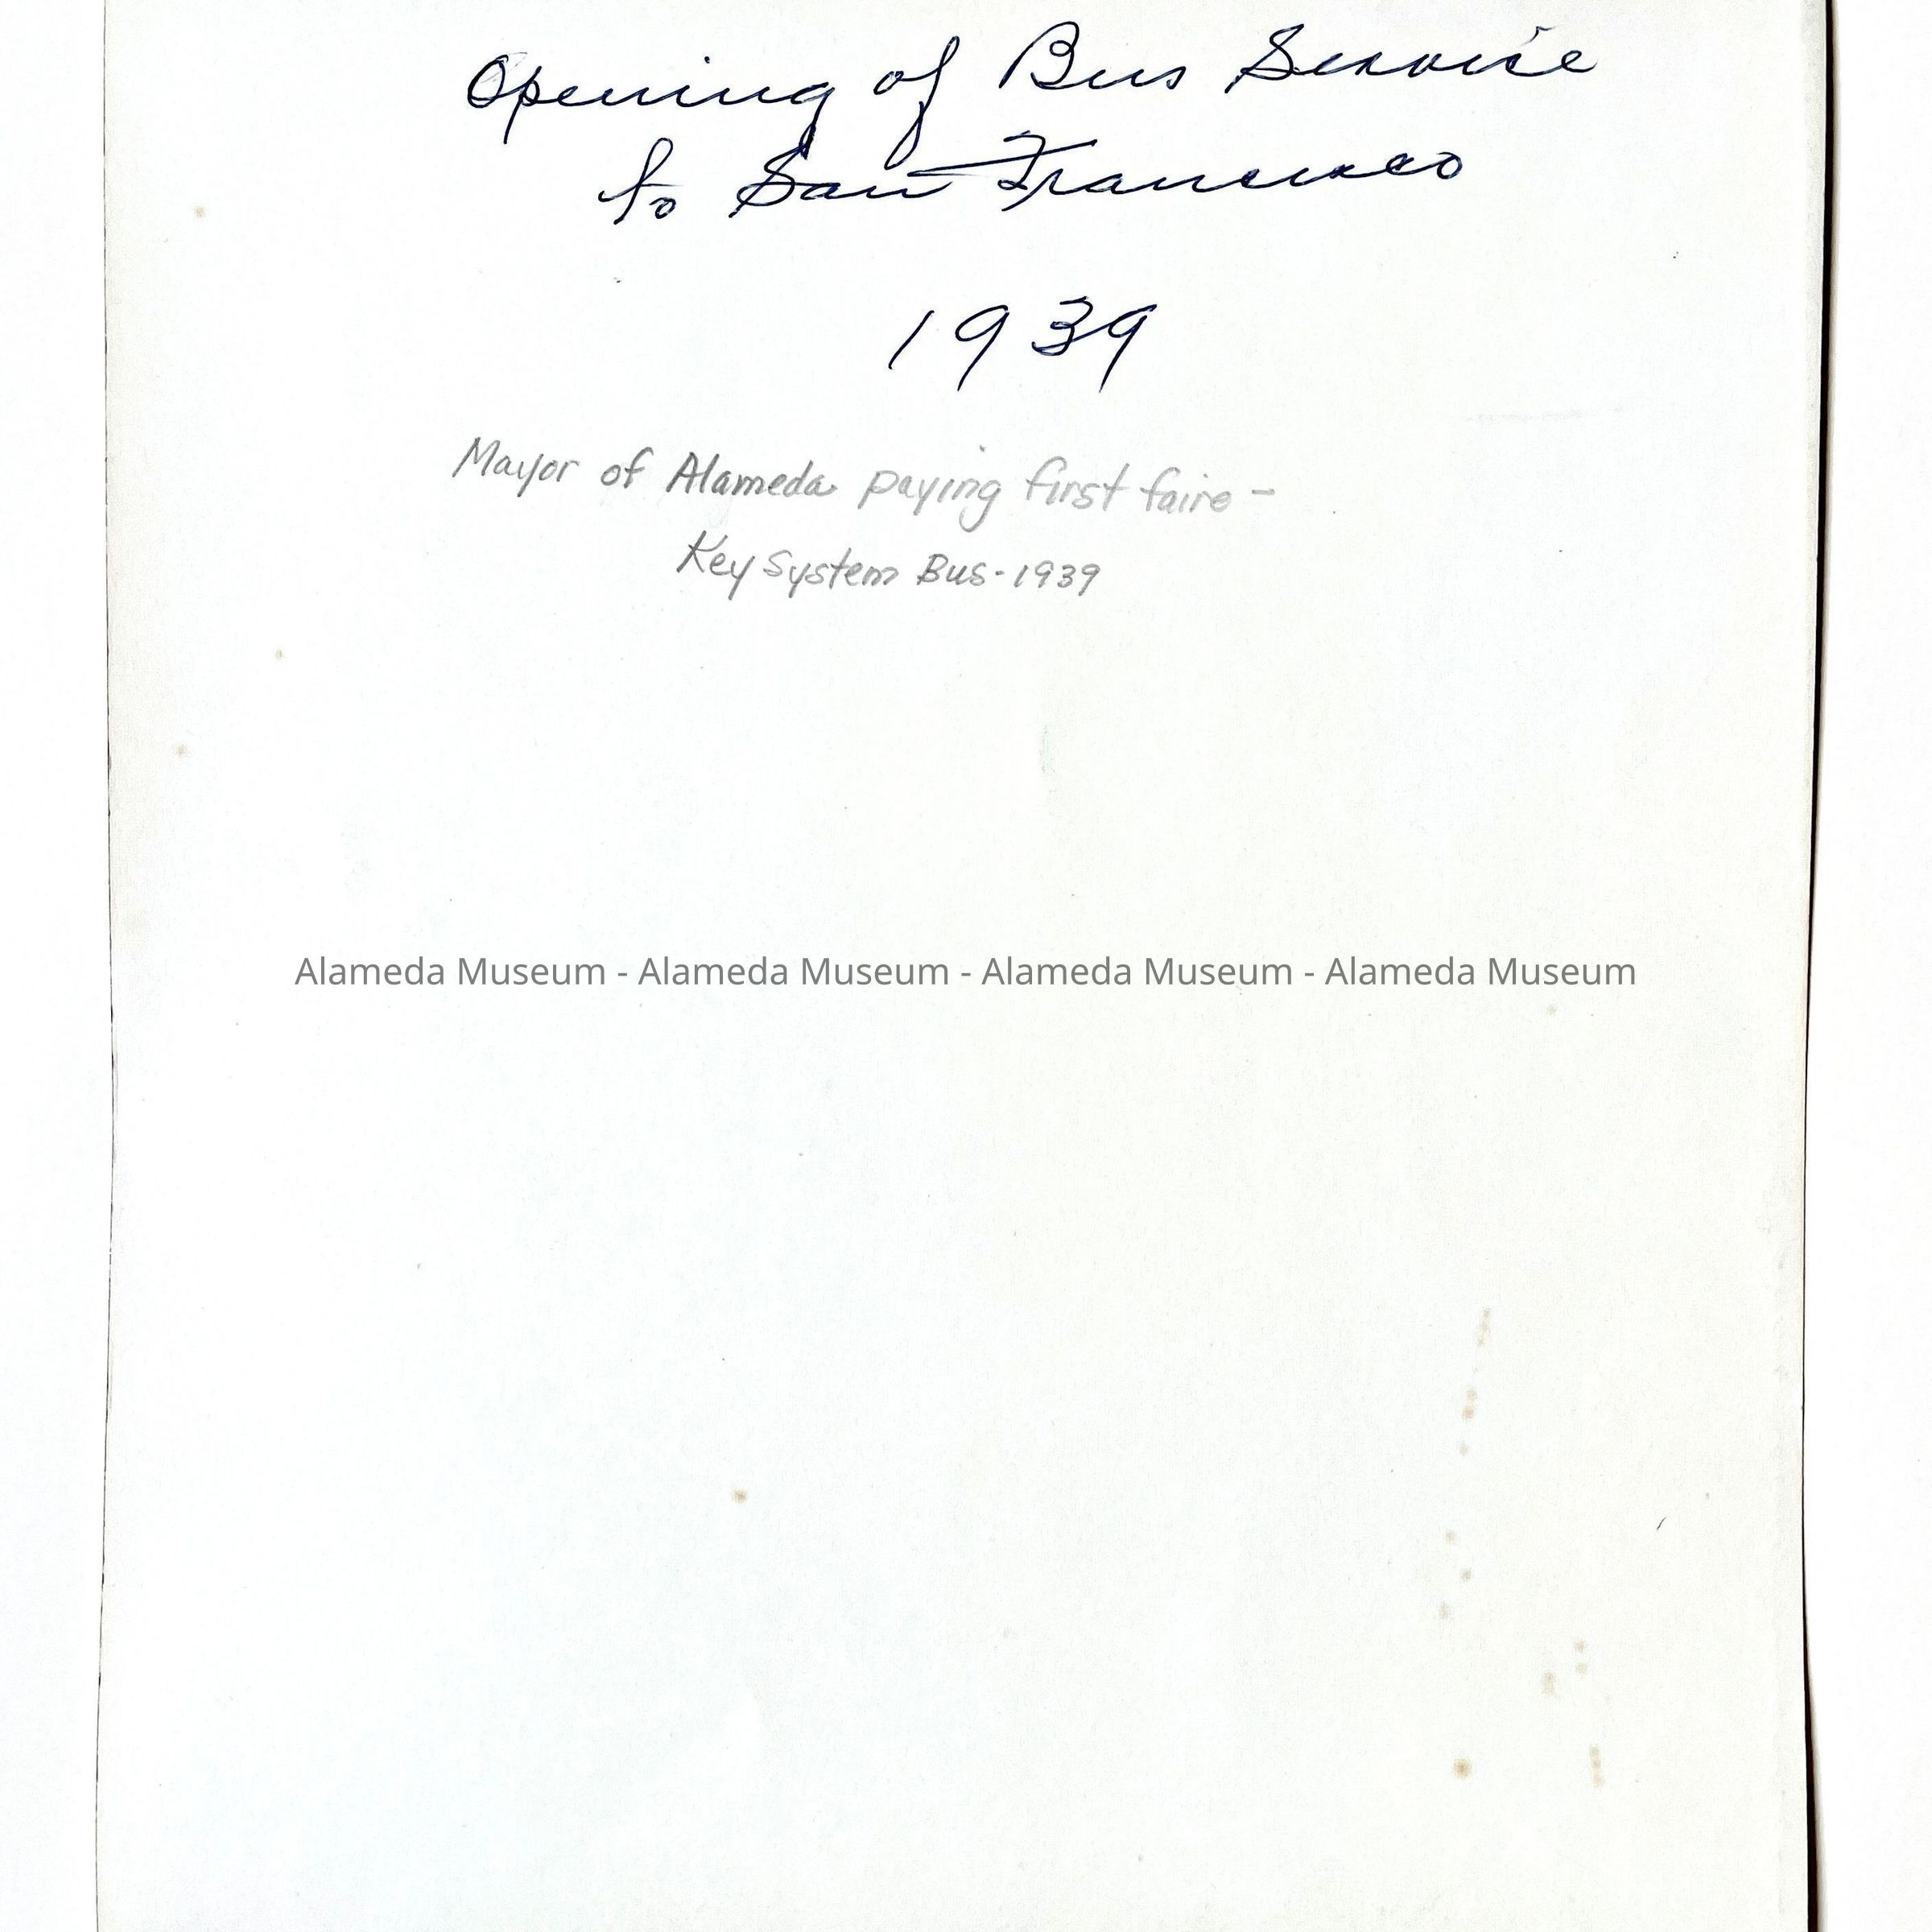 Opening of Bus Service
to San Francisco
1939
Mayor of Alameda paying first faire -
Key System Bus - 1939
Alameda Museum - Alameda Museum - Alameda Museum - Alameda Museum